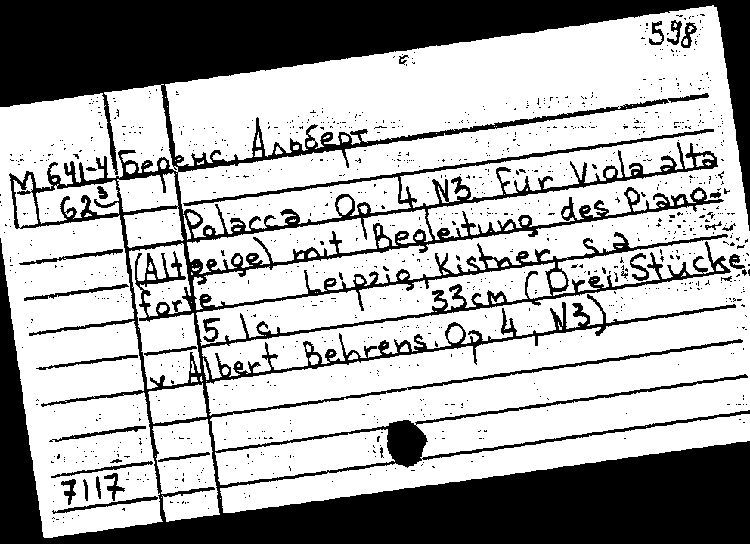 598
М 641-4 Беренс, Альберт
62³
Polacca. Op. 4, N3. Für Viola alta
(Altgeige) mit Begleitung des Piano-
forte. Leipzig, Kistner, s.a
5, 1c. 33cm (Drei Stücke
v. Albert Behrens. Op. 4, N3).
7117